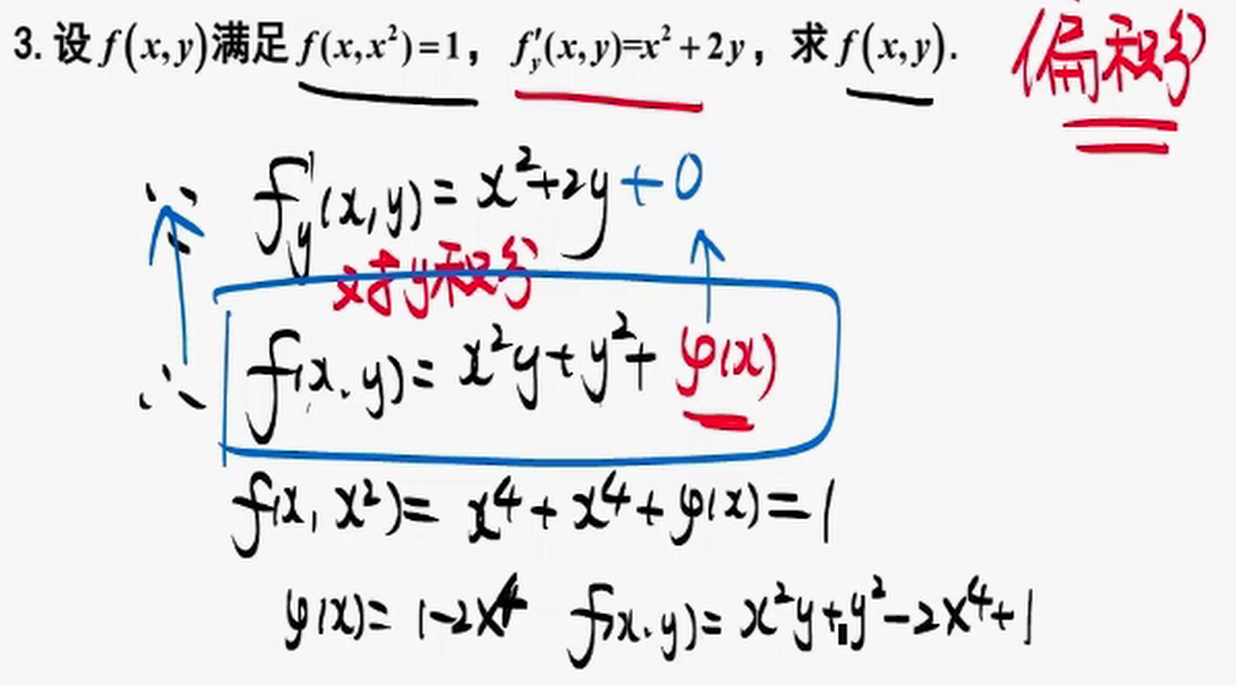 3. 设 f(x,y)满足 f(x,x²)=1， f′y(x,y)=x²+2y，求 f(x,y).
偏积分
∵ f′y(x,y)=x²+2y+0
对y积分
∴ f(x,y)=x²y+y²+φ(x)
f(x,x²)=x⁴+x⁴+φ(x)=1
φ(x)=1-2x⁴ f(x,y)=x²y+y²-2x⁴+1